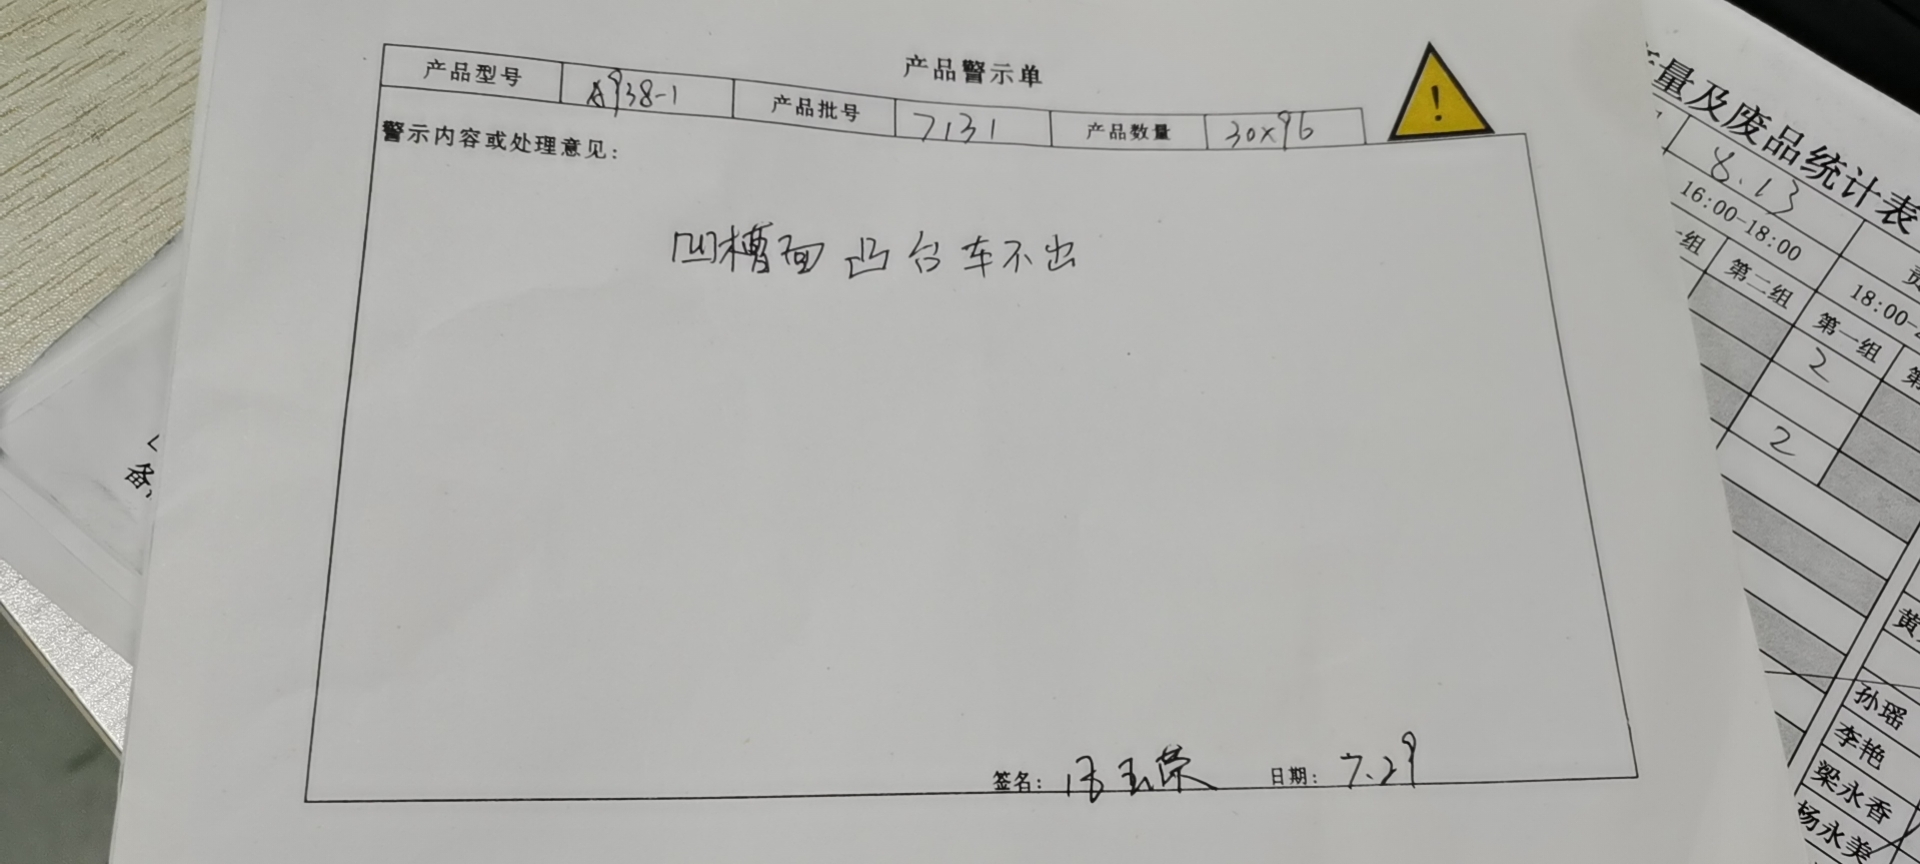 产品警示单
产品型号 A938-1 产品批号 7131 产品数量 30x96
警示内容或处理意见：
凹槽面凸台车不出
签名： 玉荣 日期： 7.29
量及废品统计表
8.13
16:00-18:00
18:00-
组 第二组 第一组 第
2
2
黄
孙瑶
李艳
梁永香
杨永美
备